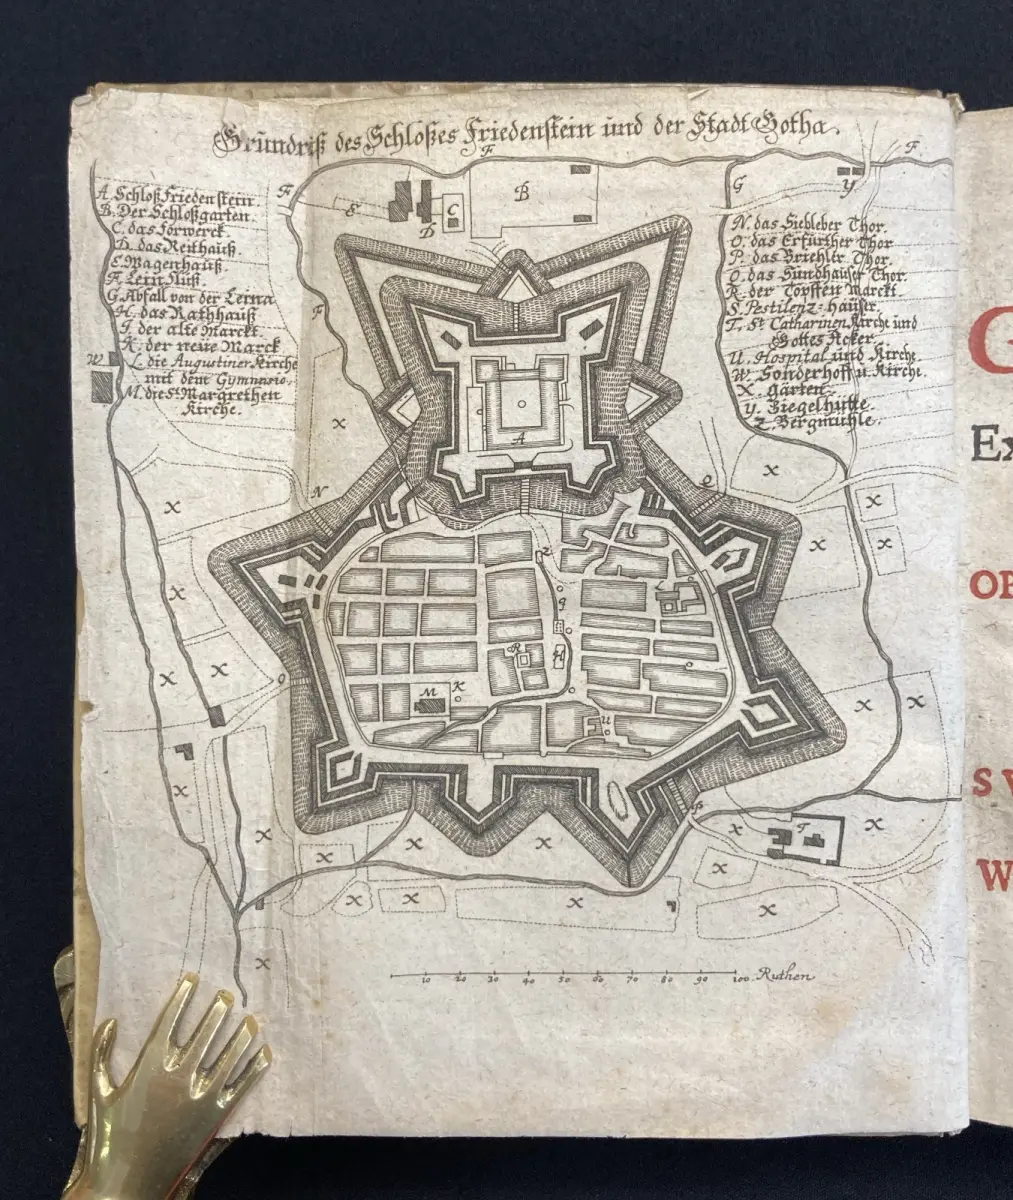 Grundriß des Schloßes Friedenstein und der Stadt Gotha.
A. Schloß Friedenstein.
B. Der Schloßgarten.
C. das Forwerck.
D. das Reithauß.
E. Wagenhauß.
F. Lein fluß.
G. Abfall von der Leina
H. das Rathhauß
I. der alte Marckt.
K. der neue Marck
L. die Augustiner Kirche
mit dem Gymnasio.
M. die St. Margrethen
Kirche.
N. das Siebleber Thor.
O. das Erfurther Thor
P. das Briehler Thor.
Q. das Sundhäuser Thor.
R. der Topffen Marckt.
S. Pestilenz-Häuser.
T. St. Catharinen Kirche und
Gottes Acker.
U. Hospital und Kirche.
W. Sonderhoff u. Kirche.
X. Gärten.
Y. Ziegelhütte.
Z. Bergmühle.
F
F
F.
F
E
D
C
B
G
Y
W
A
X
N
X
Q
X
X
X
X
X
X
X
X
O
R
H
M
K
U
X
X
X
X
X
X
X
X
P
X
T
X
X
X
X
X
X
X
10 20 30 40 50 60 70 80 90 100. Ruthen
G
Ex
OB
S V
W